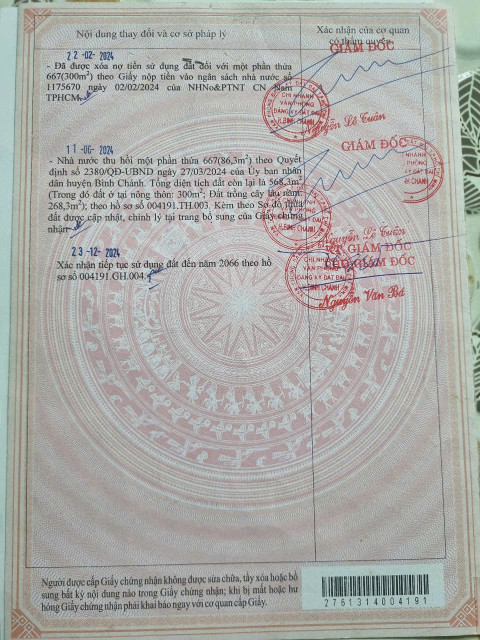 Nội dung thay đổi và cơ sở pháp lý
Xác nhận của cơ quan
có thẩm quyền
22-02-2024
GIÁM ĐỐC
- Đã được xóa nợ tiền sử dụng đất đối với một phần thửa
667(300m²) theo Giấy nộp tiền vào ngân sách nhà nước số
1175670 ngày 02/02/2024 của NHNo&PTNT CN Nam
TPHCM.
CHI NHÁNH
VĂN PHÒNG
ĐĂNG KÝ ĐẤT ĐAI
H.BÌNH CHÁNH
Nguyễn Lê Tuấn
11-06-2024
GIÁM ĐỐC
- Nhà nước thu hồi một phần thửa 667(86,3m²) theo Quyết
định số 2380/QĐ-UBND ngày 27/03/2024 của Ủy ban nhân
dân huyện Bình Chánh. Tổng diện tích đất còn lại là 568,3m²
(Trong đó đất ở tại nông thôn: 300m²; Đất trồng cây lâu năm:
268,3m²); theo hồ sơ số 004191.TH.003. Kèm theo Sơ đồ thửa
đất được cập nhật, chỉnh lý tại trang bổ sung của Giấy chứng
nhận.
Nguyễn Lê Tuấn
23-12-2024
KT.GIÁM ĐỐC
PHÓ GIÁM ĐỐC
Xác nhận tiếp tục sử dụng đất đến năm 2066 theo hồ
sơ số 004191.GH.004.
CHI NHÁNH
VĂN PHÒNG
ĐĂNG KÝ ĐẤT ĐAI
BÌNH CHÁNH
Nguyễn Văn Ba
Người được cấp Giấy chứng nhận không được sửa chữa, tẩy xóa hoặc bổ
sung bất kỳ nội dung nào trong Giấy chứng nhận; khi bị mất hoặc hư
hỏng Giấy chứng nhận phải khai báo ngay với cơ quan cấp Giấy.
2761314004191